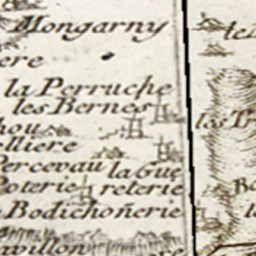 Mongarny
ere
la Perruche
les Bernes
hou
elliere
Percevau la Gue
Poterie reterie
Bodichoñerie
avillon
te
las Tr
Bo
l